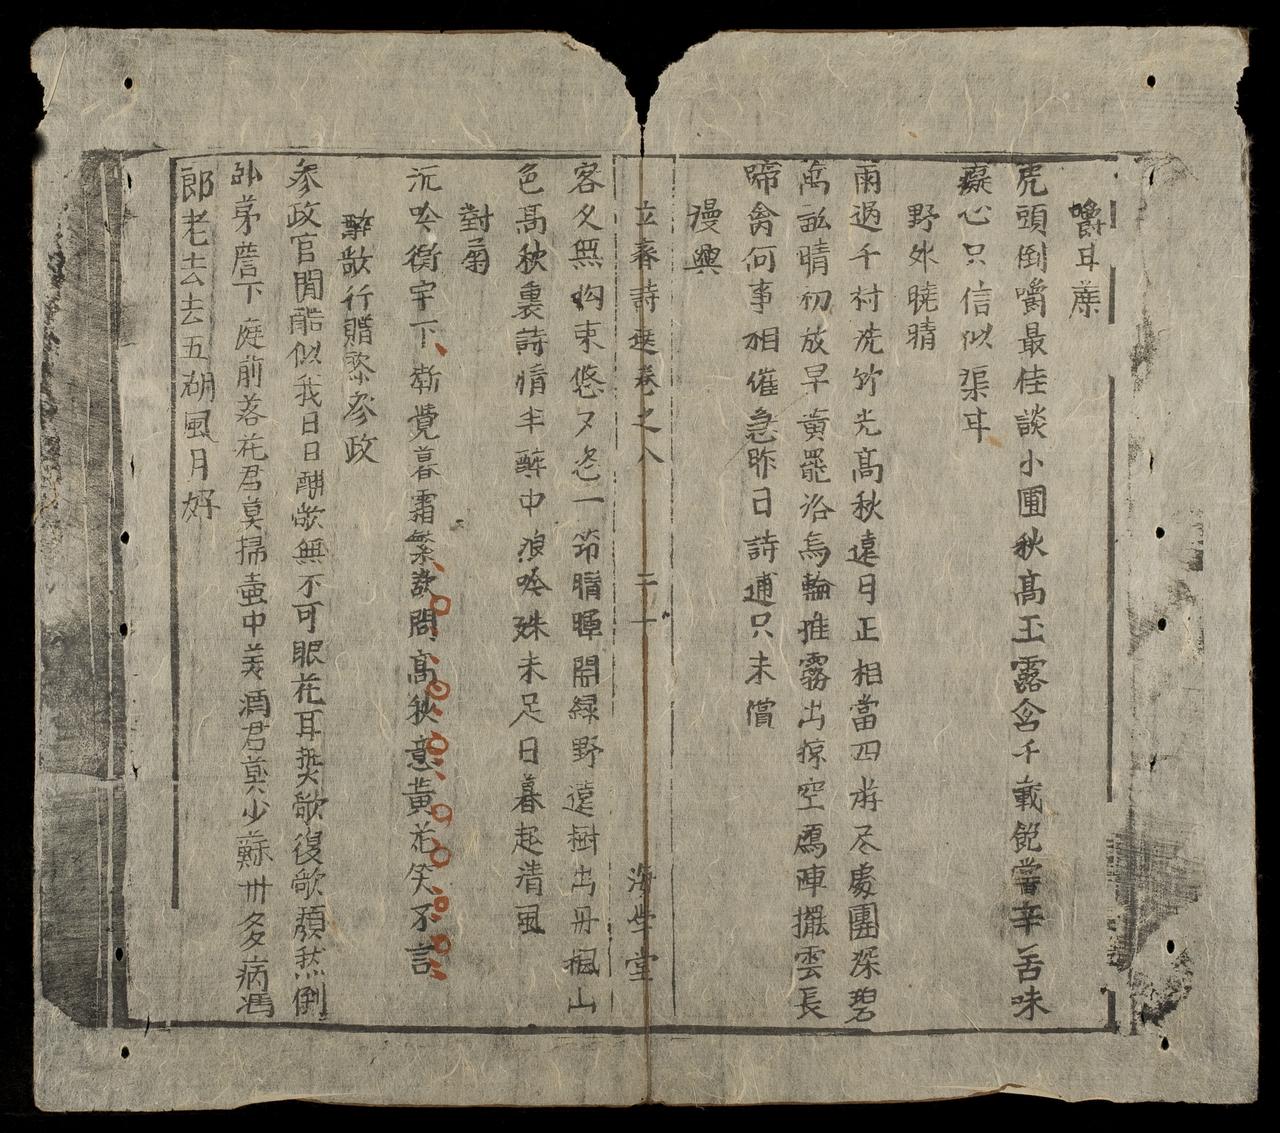 嚼甘蔗
虎頭倒嚼最佳談小圃秋高玉露含千載飽嘗辛苦味
癡心只信似渠甘
野外曉晴
雨過千村洗竹光高秋遠日正相當四游尽處團深碧
萬訟晴初放早黃罷浴烏輪推霧出掠空鴈陣擺雲長
啼禽何事相催急昨日詩逋只未償
漫興
立春詩選卷之八 二十 海學堂
客久無拘束悠々迄一笻晴暉開綠野遠樹出丹楓山
色高秋裏詩情半醉中浪吟殊未足日暮起清風
對菊
沉吟衡宇下漸覺暮霜繁欲問高秋意黃花笑不言
醉歌行贈黎參政
參政官閒酷似我日日酣歌無不可眼花耳熱歌復歌頹然倒
臥茅簷下庭前落花君莫掃壺中美酒君莫少蘇州多病馮
郎老去去五湖風月好